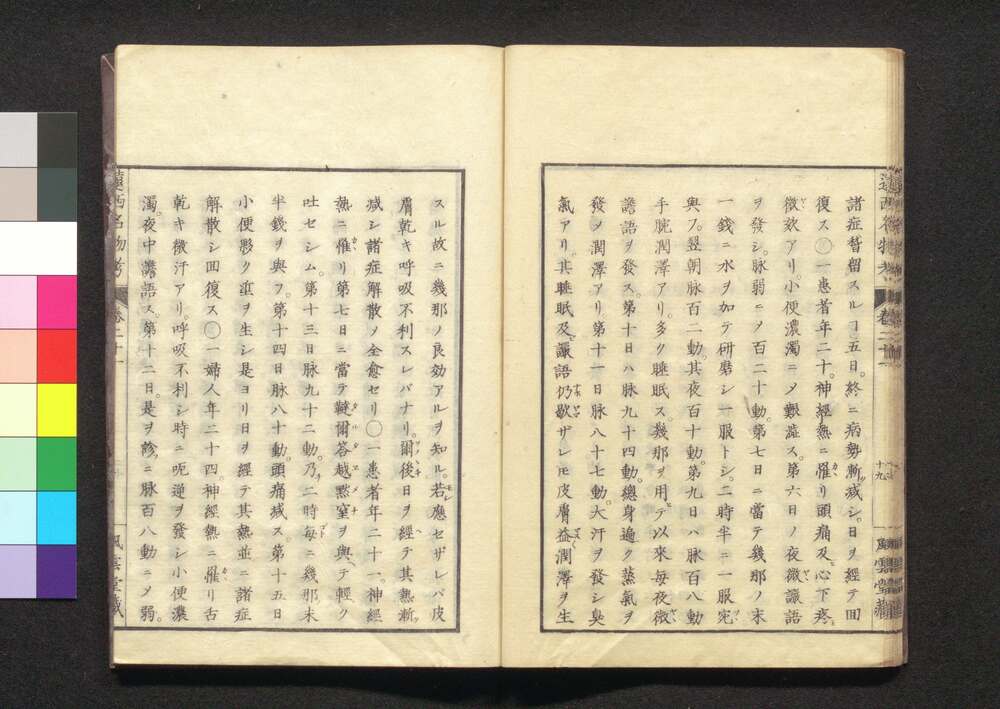 諸症暫留スルヿ五日。終ニ病勢漸減シ。日ヲ經テ回
復ス〇一患者年二十。神經熱ニ罹リ頭痛及心下疼。
微欬アリ。小便濃濁ニメ艱澁ス。第六日ノ夜微譫語
ヲ發シ。脉弱ニメ百二十動。第七日ニ當テ幾那ノ末
一錢ニ水ヲ加テ研磨シ一服トシ。二時半ニ一服宛
與フ。翌朝脉百二動。其夜百十動。第九日ハ脉百八動
手腕潤澤アリ。多ク睡眠ス幾那ヲ用テ以來毎夜微
譫語ヲ發ス。第十日ハ脉九十四動。總身遍ク蒸氣ヲ
發メ潤澤アリ。第十一日脉八十七動。大汗ヲ發シ臭
氣アリ。其睡眠及譫語仍歇ザレモ皮膚益潤澤ヲ生
遠西名物考
卷二十一
十九
風雲堂藏
スル故ニ幾那ノ良効アルヲ知ル。若應セザレバ皮
膚乾キ呼吸不利スレバナリ。爾後日ヲ經テ其熱漸
減シ諸症解散メ全愈セリ〇一患者年二十一。神經
熱ニ罹リ第七日ニ當テ韃爾答越黙窒ヲ與ヘテ輕ク
吐セシム。第十三日脉九十二動。乃二時毎ニ幾那末
半錢ヲ與フ。第十四日脉八十動。頭痛減ス。第十五日
小便夥ク垽ヲ生シ是ヨリ日ヲ經テ其熱並ニ諸症
解散シ回復ス〇一婦人年二十四神經熱ニ罹リ舌
乾キ微汗アリ。呼吸不利シ時ニ呃逆ヲ發シ小便濃
濁。夜中譫語ス。第十二日。是ヲ診ニ脉百八動ニメ弱。
遠西名物考
卷二十一
風雲堂藏